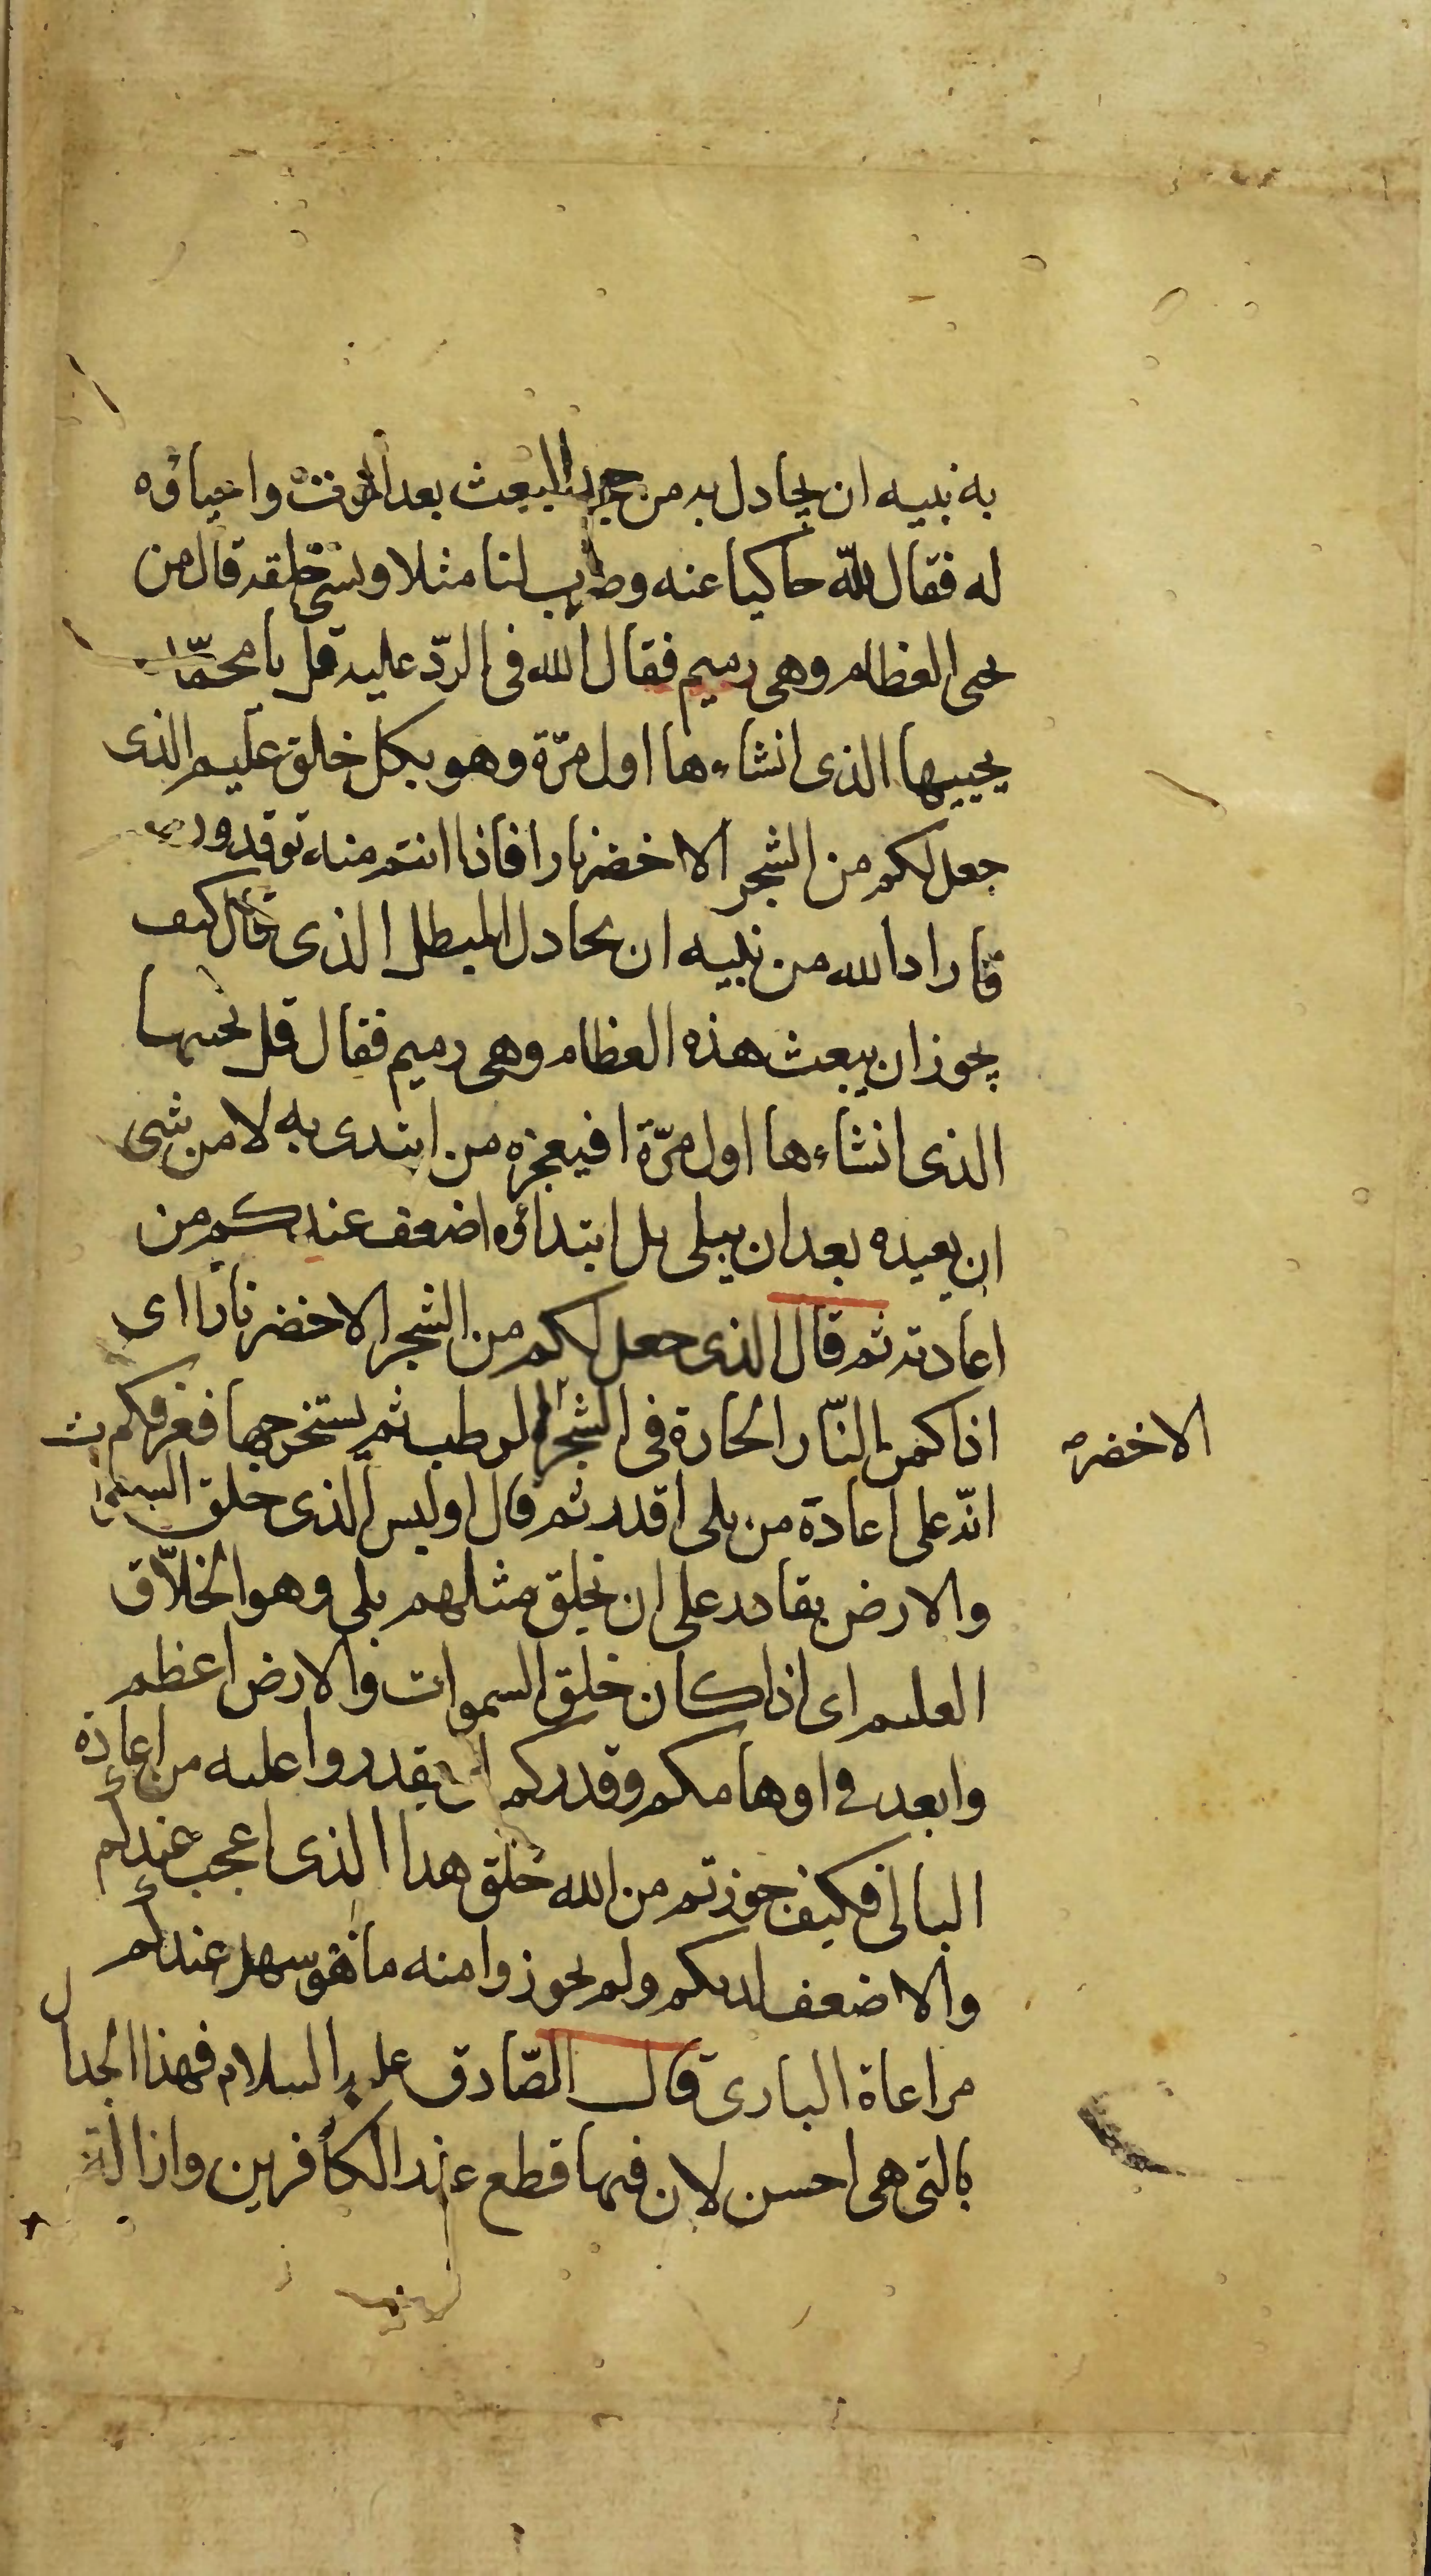 به نبيه ان يجادل به من جحد البعث بعد الموت واحياؤه
له فقال الله حاكيا عنه وضرب لنا مثلا ونسي خلقه قال من
يحيى العظام وهي رميم فقال الله في الردّ عليه قل يا محمّد
يحييها الذى انشاءها اول مرّة وهو بكل خلق عليم الذى
جعل لكم من الشجر الاخضر نارا فاذا انتم منه توقدون
فاراد الله من نبيه ان يجادل المبطل الذى قال كيف
يجوز ان يبعث هذه العظام وهي رميم فقال قل يحييها
الذى انشاءها اول مرّة افيعجزه من ابتدى به لا من شى
ان يعيده بعد ان يبلى بل ابتداؤه اضعف عندكم من
اعادته ثم قال الذى جعل لكم من الشجر الاخضر نارا اى
اذا كمن النّار الحارة في الشجر الرطب ثم يستخرجها فعرفكم
الاخضر
انّه على اعادة من بلى اقدر ثم قال اوليس الذى خلق السموات
والارض بقادر على ان يخلق مثلهم بلى وهو الخلاّق
العليم اى اذا كان خلق السموات والارض اعظم
وابعد في اوهامكم وقدركم ان يقدروا عليه من اعادة
البالى فكيف جوزتم من الله خلق هذا الذى اعجب عندكم
والاضعف لديكم ولم يجوزوا منه ما هو سهل عندكم
مراعاة البارى قال الصّادق عليه السلام فهذا الجدال
بالتى هى احسن لان فيها قطع عند الكافرين وازالة